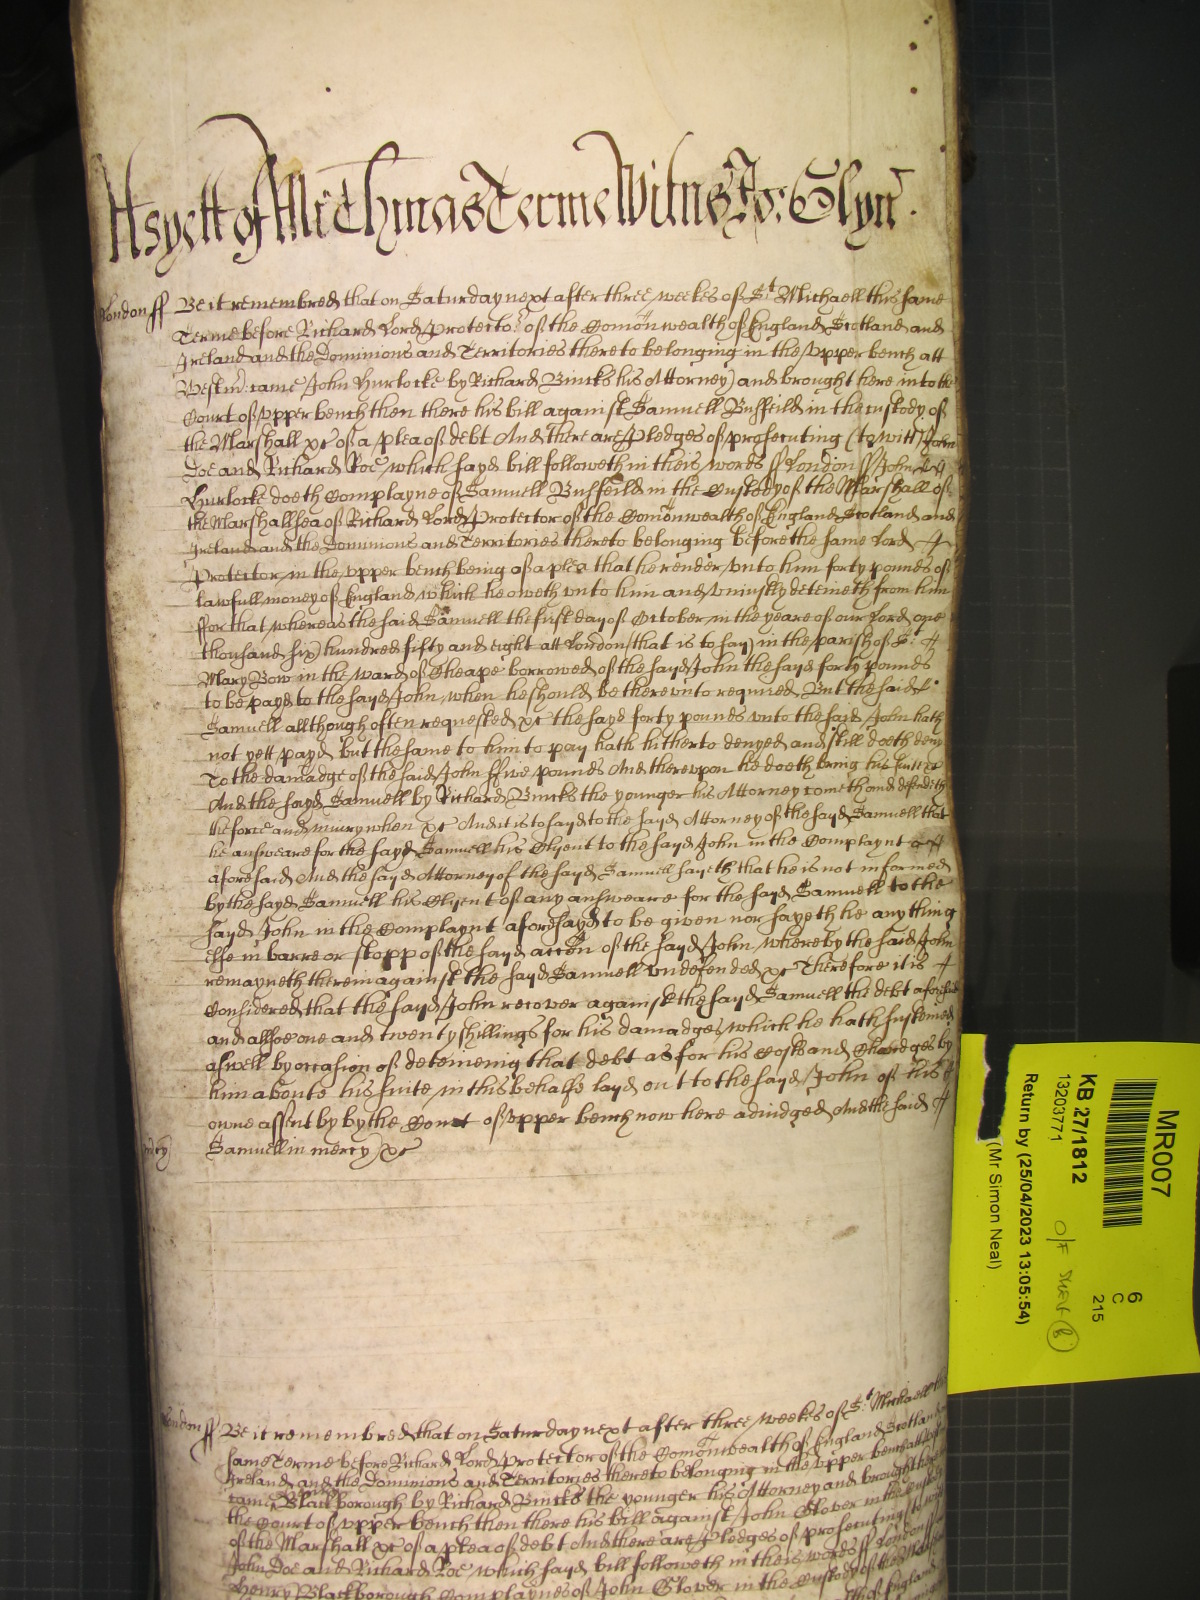 As yett of Mich'mas Terme Witnes Jo: Glyn.
London ff Be it remembred that on Saturday next after three weekes of St. Michaell this same
Terme before Richard Lord Protector of the Comonwealth of England Scotland and
Ireland and the Dominions and Territories thereto belonging in the upper bench att
Westm: came John Hurlocke by Richard Bincks his Attorney and brought here into the
Court of upper bench then there his bill against Samuell Busfeild in the custody of
the Marshall &c of a plea of debt And there are Pledges of prosecuting (to witt) John
Doe and Richard Roe, which sayd bill followeth in theis words ff London ff John
Hurlocke doeth Complayne of Samuell Busfeild in the Custody of the Marshall of
the Marshallsea of Richard Lord Protector of the Comonwealth of England Scotland and
Ireland and the Dominions and Territories thereto belonging before the same Lord
Protector in the upper bench being of a plea that he render unto him forty pounds of
lawfull money of England which he oweth unto him and uniustly deteineth from him
ffor that whereas the said Samuell the first day of October in the yeare of our Lord one
thousand six hundred fifty and eight att London (that is to say) in the parish of St.
Mary Bow in the ward of Cheape borrowed of the sayd John the sayd forty pounds
to be payd to the sayd John when he should be thereunto required, But the said
Samuell allthough often requested &c the sayd forty pounds unto the sayd John hath
not yett payd but the same to him to pay hath hitherto denyed and still doeth deny
To the damadge of the said John ffive pounds And thereupon he doeth bring his suite &c
And the sayd Samuell by Richard Bincks the younger his Attorney cometh and defendeth
the force and iniury when &c And it is to sayd to the sayd Attorney of the sayd Samuell that
he answeare for the sayd Samuell his Clyent to the sayd John in the Complaynt
aforesaid And the sayd Attorney of the sayd Samuell sayeth that he is not informed
by the sayd Samuell his Clyent of any answeare for the sayd Samuell to the
sayd John in the Complaynt aforesayd to be given nor sayeth he any thing
else in barre or stopp of the sayd accon of the sayd John whereby the said John
remayneth therein against the sayd Samuell undefended &c Therefore it is
Considered that the sayd John recover against the sayd Samuell the debt aforesaid
and allsoe one and twenty shillings for his damadges which he hath susteined
aswell by occasion of deteineing that debt as for his costs and Chardges by
him aboute his suite in this behalfe layd out to the sayd John of his
owne assent by by the Court of upper bench now here adiudged And the said
mercy Samuell in mercy &c
London ff Be it remembred that on Saturday next after three weekes of St. Michaell this
same Terme before Richard Lord Protector of the Comonwealth of England Scotland
Ireland and the Dominions and Territories thereto belonging in the upper bench att
came Henry Blackborough by Richard Bincks the younger his Attorney and brought here
the Court of upper bench then there his bill against John Glover in the custody
of the Marshall &c of a plea of debt And there are Pledges of prosecuting to witt
John Doe and Richard Roe, which sayd bill followeth in theis words ff London ff
Henry Blackborough Complaynes of John Glover in the Custody of the Marshall
of England
MR007
KB 27/1812
13203771
Return by (25/04/2023 13:05:54)
(Mr Simon Neal)
6
C
215
O/F Shelf B